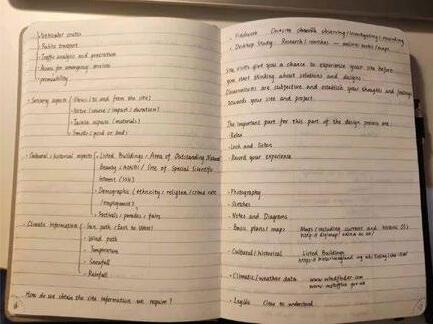 · Vehicular routes
· Public transport
· Traffic analysis and prediction
· Access for emergency services
· permeability
· Sensory aspects
· Views (to and from the site)
· Noise (source / impact / duration)
· Tactile aspects (materials)
· Smells (good or bad)
· Cultural / historical aspects
· Listed Buildings / Area of Outstanding Natural
Beauty / AONB / Site of Special Scientific
Interest (SSSI)
· Demographic (ethnicity / religion / crime rate
/ employment)
· Festivals / parades / fairs
· Climate Information
· Sun path (East to West)
· Wind path
· Temperature
· Snowfall
· Rainfall
· How do we obtain the site information we require?
· Fieldwork On-site observing / investigating / recording
· Desktop Study Research / maps
Site visits give you a chance to experience your site before
you start thinking about solutions and designs.
Observations are subjective and establish your thoughts and feelings
towards your site and project.
The important part for this part of the design process are:
· Relax
· Look and listen
· Record your experience
· Photography
· Sketches
· Notes and Diagrams
· Basic plans / maps Maps (including current and historic OS)
· Cultural / historical Listed Buildings
· Climatic / weather data www.windfinder.com
www.metoffice.gov.uk
· Legible Clear to understand